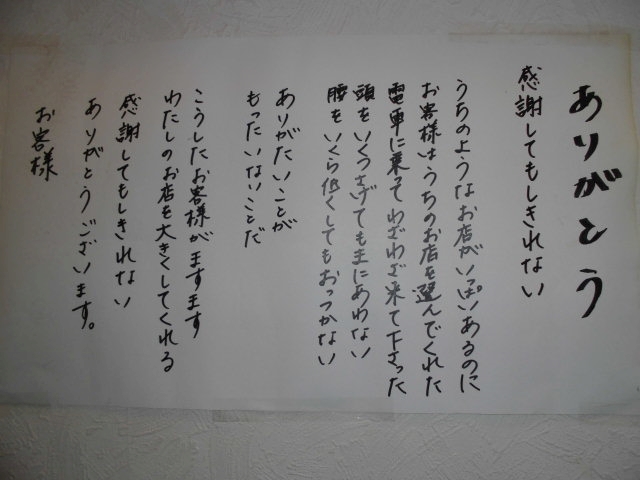 ありがとう
感謝してもしきれない
うちのようなお店がいっぱいあるのに
お客様はうちのお店を選んでくれた
電車に乗ってわざわざ来て下さった
頭をいくらさげてもまにあわない
腰をいくら低くしてもおっつかない
ありがたいことが
もったいないことだ
こうしたお客様がますます
わたしのお店を大きくしてくれる
感謝してもしきれない
ありがとうございます。
お客様